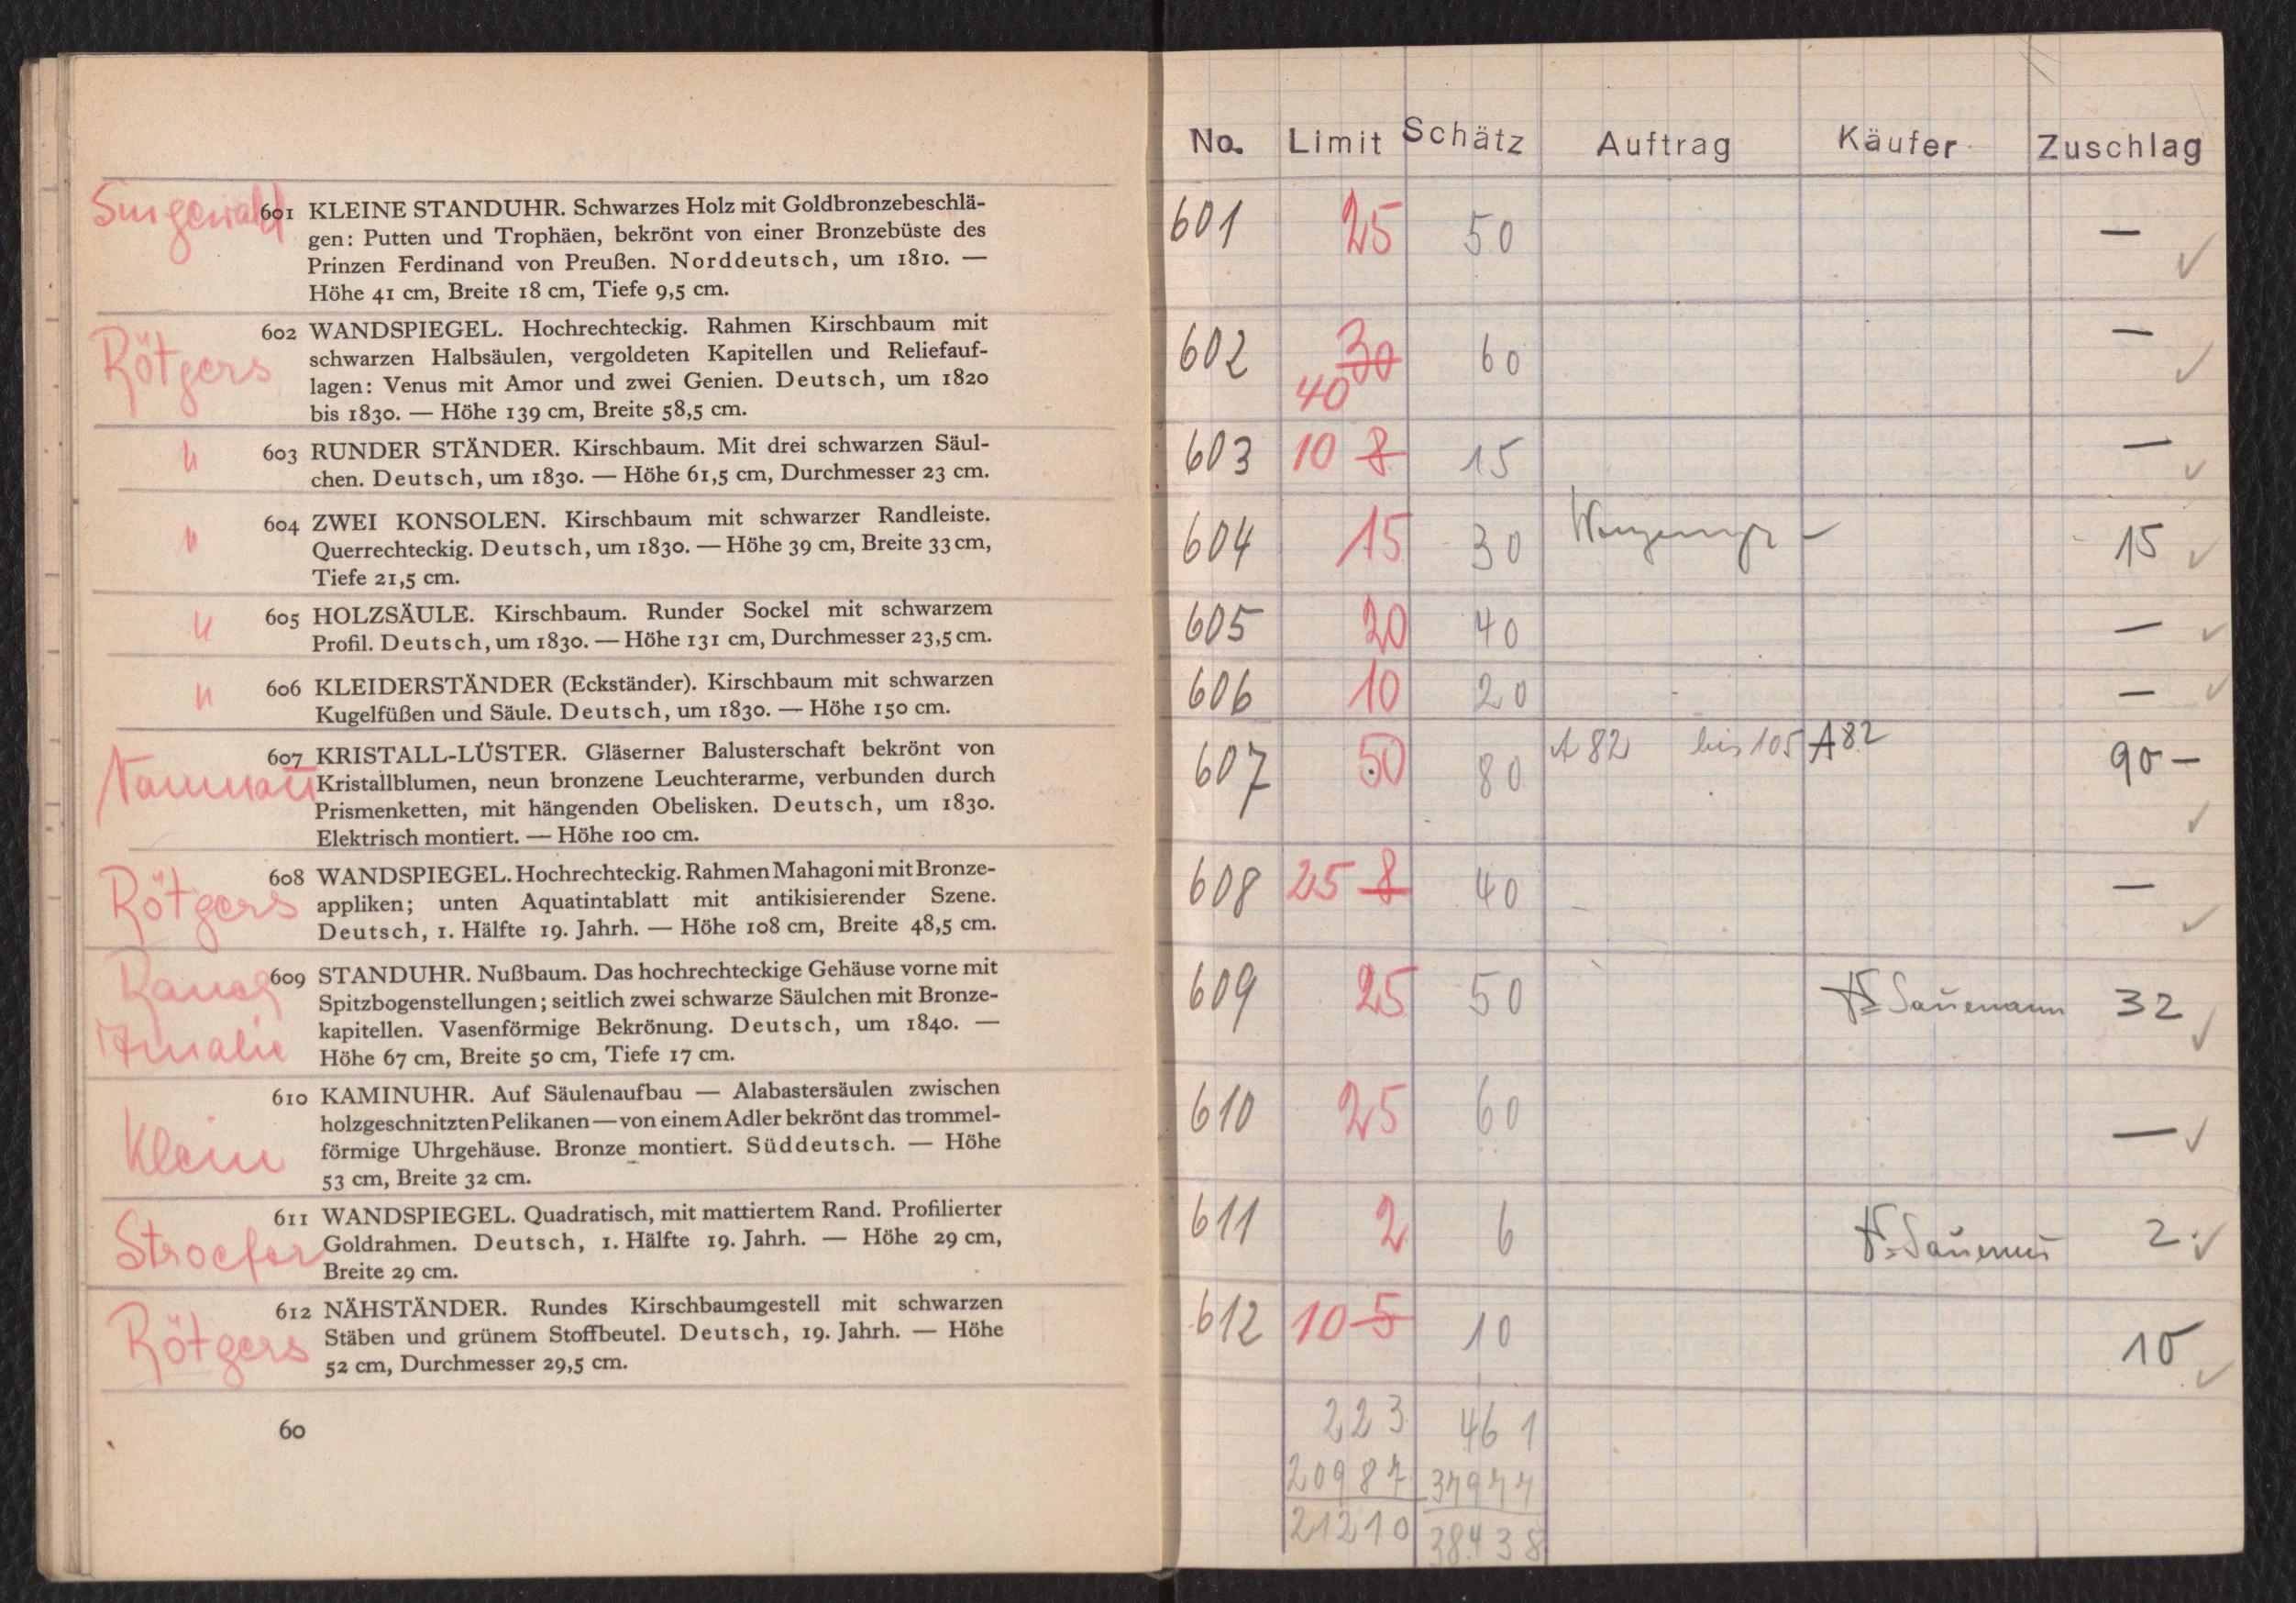 Surgenald
601 KLEINE STANDUHR. Schwarzes Holz mit Goldbronzebeschlä-
gen: Putten und Trophäen, bekrönt von einer Bronzebüste des
Prinzen Ferdinand von Preußen. Norddeutsch, um 1810. —
Höhe 41 cm, Breite 18 cm, Tiefe 9,5 cm.
Rötgers
602 WANDSPIEGEL. Hochrechteckig. Rahmen Kirschbaum mit
schwarzen Halbsäulen, vergoldeten Kapitellen und Reliefauf-
lagen: Venus mit Amor und zwei Genien. Deutsch, um 1820
bis 1830. — Höhe 139 cm, Breite 58,5 cm.
"
603 RUNDER STÄNDER. Kirschbaum. Mit drei schwarzen Säul-
chen. Deutsch, um 1830. — Höhe 61,5 cm, Durchmesser 23 cm.
"
604 ZWEI KONSOLEN. Kirschbaum mit schwarzer Randleiste.
Querrechteckig. Deutsch, um 1830. — Höhe 39 cm, Breite 33 cm,
Tiefe 21,5 cm.
"
605 HOLZSÄULE. Kirschbaum. Runder Sockel mit schwarzem
Profil. Deutsch, um 1830. — Höhe 131 cm, Durchmesser 23,5 cm.
"
606 KLEIDERSTÄNDER (Eckständer). Kirschbaum mit schwarzen
Kugelfüßen und Säule. Deutsch, um 1830. — Höhe 150 cm.
607 KRISTALL-LÜSTER. Gläserner Balusterschaft bekrönt von
Kristallblumen, neun bronzene Leuchterarme, verbunden durch
Prismenketten, mit hängenden Obelisken. Deutsch, um 1830.
Elektrisch montiert. — Höhe 100 cm.
Rötgers
608 WANDSPIEGEL. Hochrechteckig. Rahmen Mahagoni mit Bronze-
appliken; unten Aquatintablatt mit antikisierender Szene.
Deutsch, 1. Hälfte 19. Jahrh. — Höhe 108 cm, Breite 48,5 cm.
Rauch
Amalie
609 STANDUHR. Nußbaum. Das hochrechteckige Gehäuse vorne mit
Spitzbogenstellungen; seitlich zwei schwarze Säulchen mit Bronze-
kapitellen. Vasenförmige Bekrönung. Deutsch, um 1840. —
Höhe 67 cm, Breite 50 cm, Tiefe 17 cm.
Klein
610 KAMINUHR. Auf Säulenaufbau — Alabastersäulen zwischen
holzgeschnitzten Pelikanen — von einem Adler bekrönt das trommel-
förmige Uhrgehäuse. Bronze montiert. Süddeutsch. — Höhe
53 cm, Breite 32 cm.
Stroefer
611 WANDSPIEGEL. Quadratisch, mit mattiertem Rand. Profilierter
Goldrahmen. Deutsch, 1. Hälfte 19. Jahrh. — Höhe 29 cm,
Breite 29 cm.
Rötgers
612 NÄHSTÄNDER. Rundes Kirschbaumgestell mit schwarzen
Stäben und grünem Stoffbeutel. Deutsch, 19. Jahrh. — Höhe
52 cm, Durchmesser 29,5 cm.
60
No. Limit Schätz Auftrag Käufer Zuschlag
601 25 50 — ✓
602 30 60 — ✓
40
603 10 8 15 — ✓
604 15 30 — 15 ✓
605 20 40 — ✓
606 10 20 — ✓
607 50 80 A 82 bis 105 A 82 90 — ✓
608 25 8 40 — ✓
609 25 50 Sauemann 32 ✓
610 25 60 — ✓
611 2 6 2. ✓
612 10 5 10 10 ✓
223 461
20987 37977
21210 38438